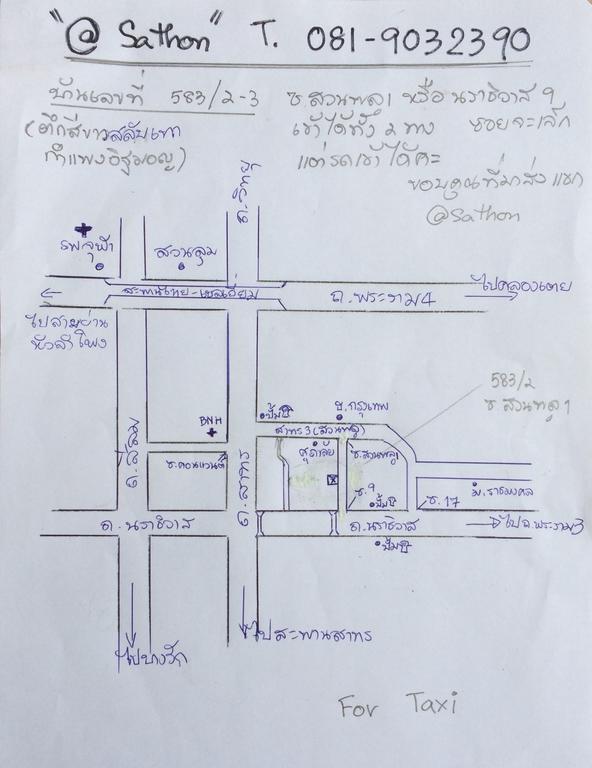 "@ Sathon" T. 081-9032390
บ้านเลขที่ 583/2-3
(ตึกสีขาวสลับเทา
กำแพงอิฐมอญ)
ซ.สวนพลู 1 หรือ นราธิวาส 9
เข้าได้ทั้ง 2 ทาง ซอยจะเล็ก
แต่รถเข้าได้ค่ะ
ขอบคุณที่มาส่งแขก
@Sathon
ถ.วิทยุ
รพ.จุฬา
สวนลุม
สะพานไทย-เบลเยี่ยม
ถ.พระราม4
ไปคลองเตย
ไปสามย่าน
หัวลำโพง
583/2
ซ.สวนพลู 1
BNH
ปั๊ม
ธ.กรุงเทพ
สาทร 3 (สวนพลู)
ถ.สีลม
ซ.คอนแวนต์
ถ.สาทร
ซ.สวนพลู1
ซ.9
ปั๊ม
ซ.17
ม.ราชมงคล
ถ.นราธิวาส
ถ.นราธิวาส
ไปถ.พระราม3
ปั๊ม
ไปบางรัก
ไปสะพานสาทร
For Taxi